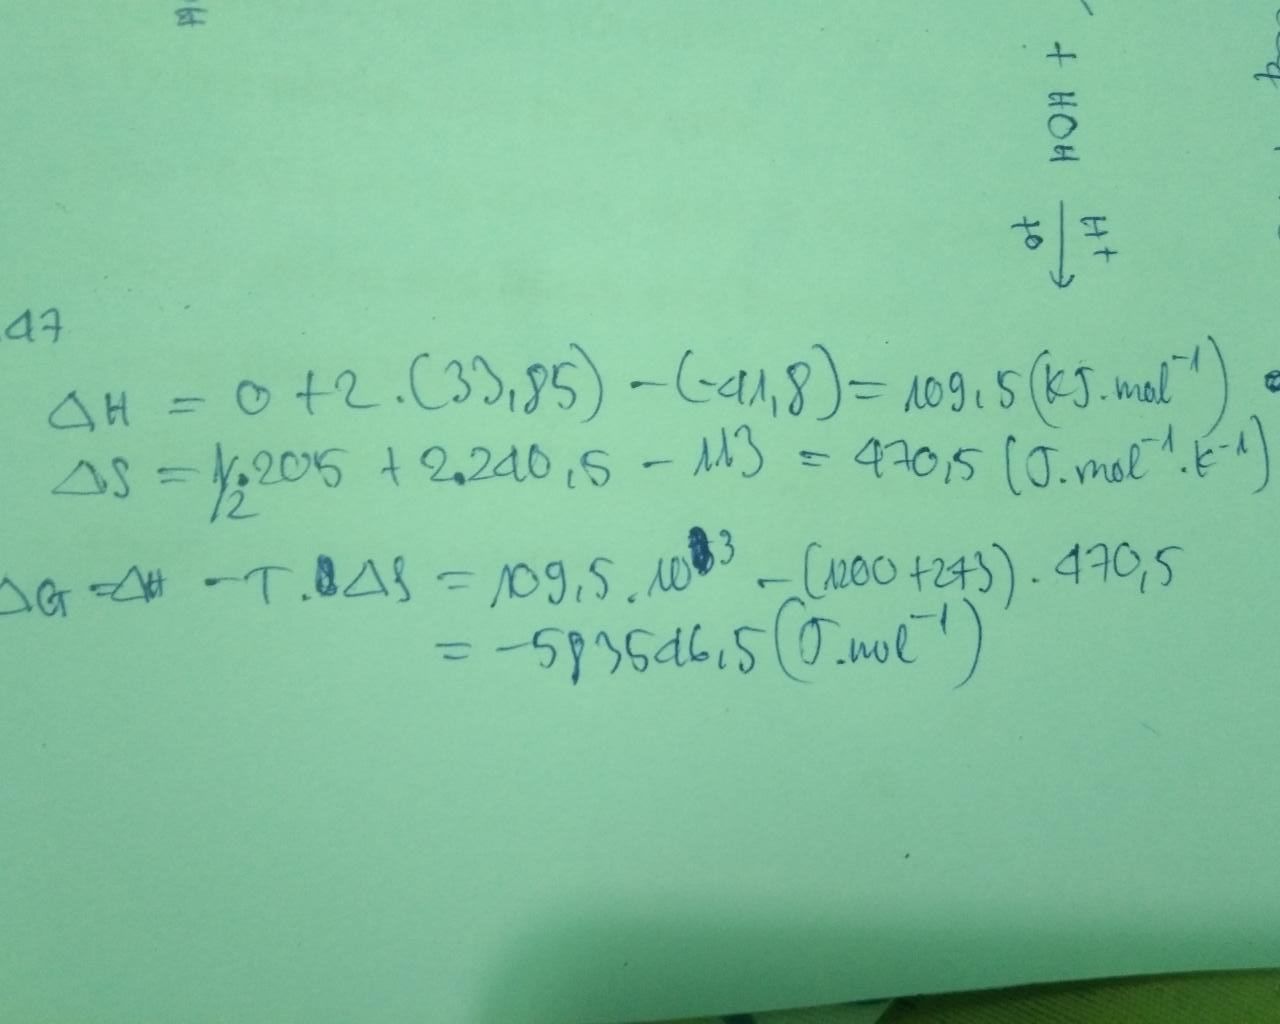 + HOH
H+
to
.47
ΔH = 0 + 2.(33,85) - (-41,8) = 109,5 (KJ.mol⁻¹)
ΔS = 1/2.205 + 2.240,5 - 113 = 470,5 (J.mol⁻¹.K⁻¹)
ΔG = ΔH - T.ΔS = 109,5.10³ - (1200+273). 470,5
= -583546,5 (J.mol⁻¹)